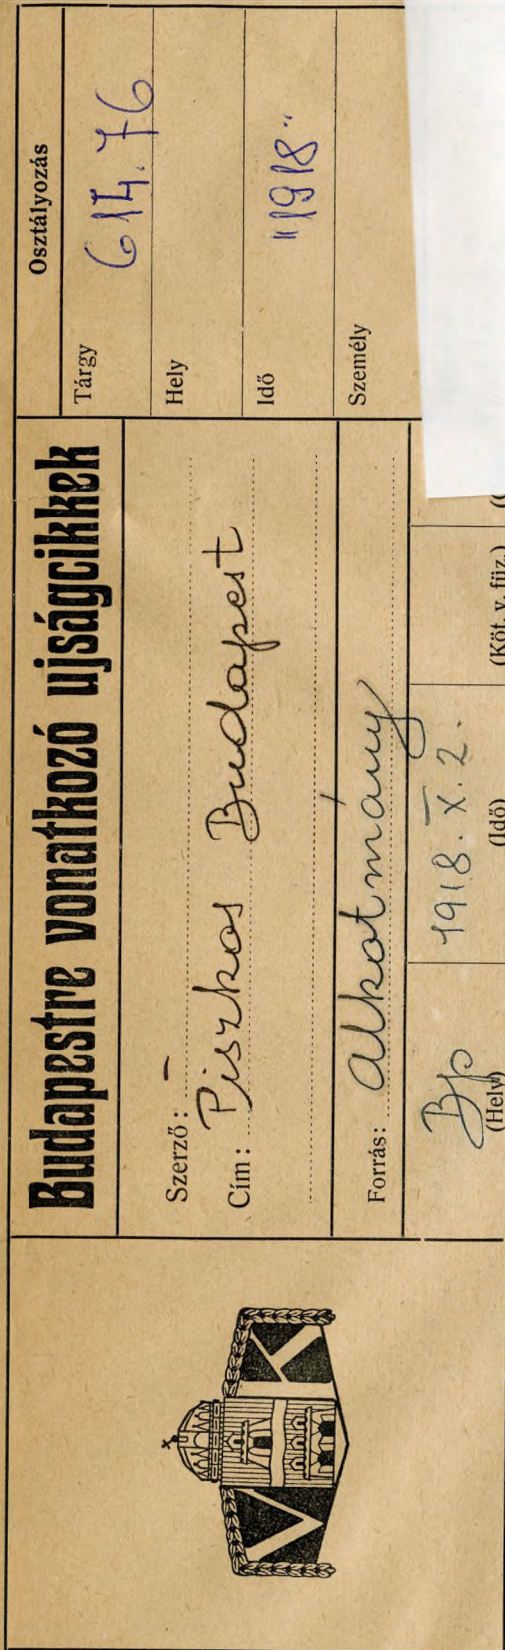 VK
Budapestre vonatkozó ujságcikkek
Szerző: –
Cím: Piszkos Budapest
Forrás: Alkotmány
Bp 1918. X. 2.
(Hely) (Idő) (Köt. v. füz.)
Osztályozás
Tárgy 614.76
Hely
Idő "1918"
Személy